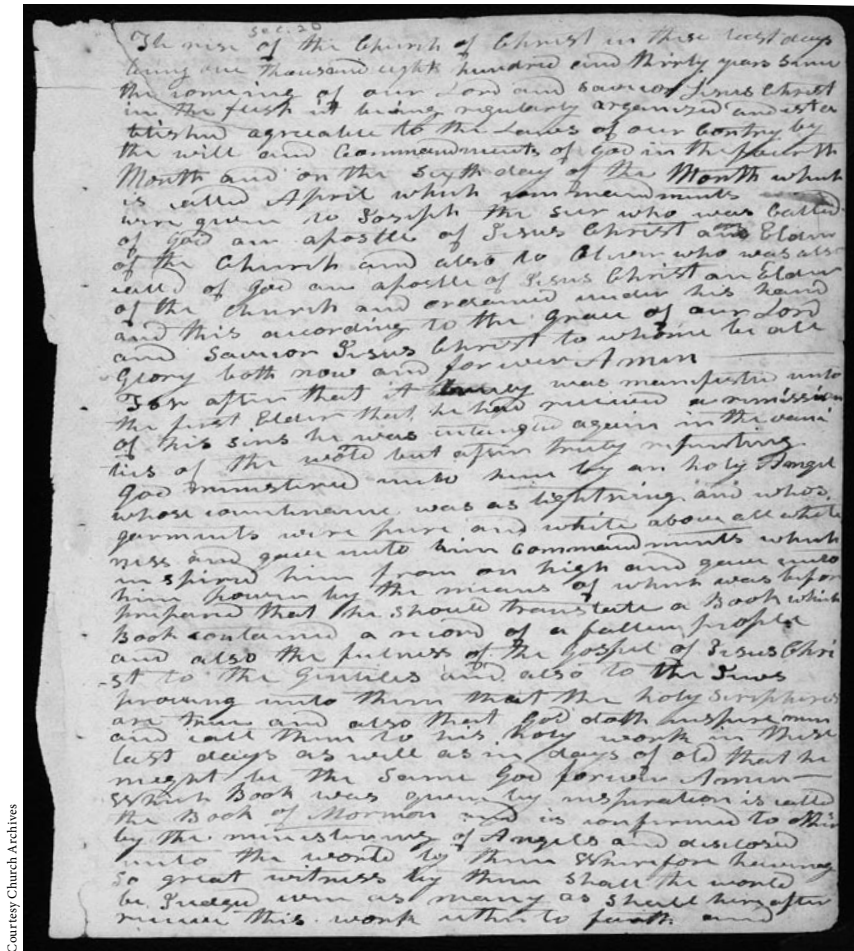 sec. 20
The rise of the Church of Christ in these last days
being one thousand eight hundred and thirty years since
the coming of our Lord and savior Jesus Christ
in the flesh it being regularly organized and esta
blished agreeable to the Laws of our Contry by
the will and Commandments of God in the fourth
Month and on the sixth day of the Month which
is called April which commandments
were given to Joseph the seer who was called
of God an apostle of Jesus Christ an Elder
of the Church and also to Oliver who was also
called of God an apostle of Jesus Christ an Elder
of the Church and ordained under his hand
and this according to the grace of our Lord
and Savior Jesus Christ to whome be all
Glory both now and forever Amen
For after that it truly was manifested unto
the first Elder that he had received a remission
of his sins he was intangled again in the vani
ties of the world but after truly repenting
God ministered unto him by an holy Angel
whose countenance was as lightning and whos
garments were pure and white above all white
ness and gave unto him commandments which
inspired him from on high and gave unto
him power by the means of which was before
prepared that he should translate a Book which
Book contained a record of a fallen people
and also the fulness of the Gospel of Jesus Chri
-st to the Gentiles and also to the Jews
proveing unto them that the holy Scriptures
are true and also that God doth inspire men
and call them to his holy work in these
last days as well as in days of old that he
might be the Same God forever Amen—
Which Book was given by inspiration is called
the Book of Mormon and is confirmed to others
by the ministering of Angels and declared
unto the world by them Wherefore haveing
so great witness by them shall the world
be Judged even as many as shall hereafter
receive this work either to faith and
Courtesy Church Archives